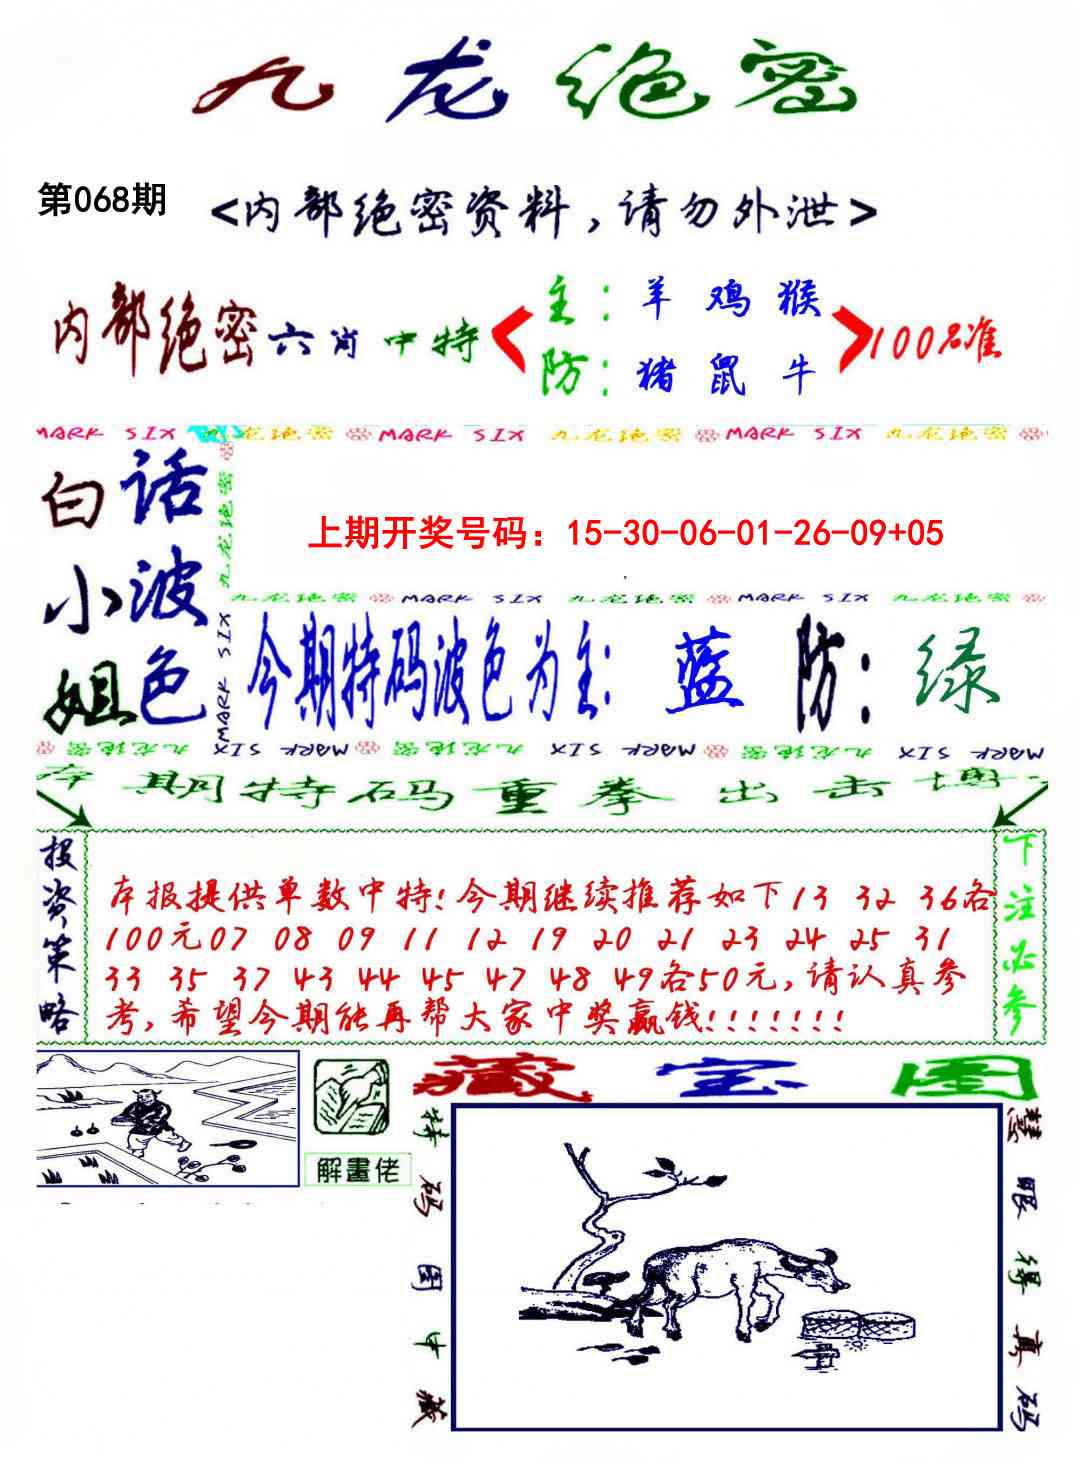 九龙绝密
第068期
<内部绝密资料，请勿外泄>
内部绝密六肖中特
主：羊 鸡 猴
防：猪 鼠 牛
100%准
MARK SIX 九龙绝密 MARK SIX 九龙绝密 MARK SIX 九龙绝密
白小姐
话波色
九龙绝密
MARK SIX
上期开奖号码：15-30-06-01-26-09+05
九龙绝密 MARK SIX 九龙绝密 MARK SIX 九龙绝密
今期特码波色为主：蓝 防：绿
九龙绝密 MARK SIX 九龙绝密 MARK SIX 九龙绝密 MARK SIX
本期特码重拳出击博
投资策略
本报提供单数中特!今期继续推荐如下13 32 36各
100元07 08 09 11 12 19 20 21 23 24 25 31
33 35 37 43 44 45 47 48 49各50元,请认真参
考,希望今期能再帮大家中奖赢钱!!!!!!!
下注必参
解畫佬
藏宝图
特码图中藏
慧眼得真码